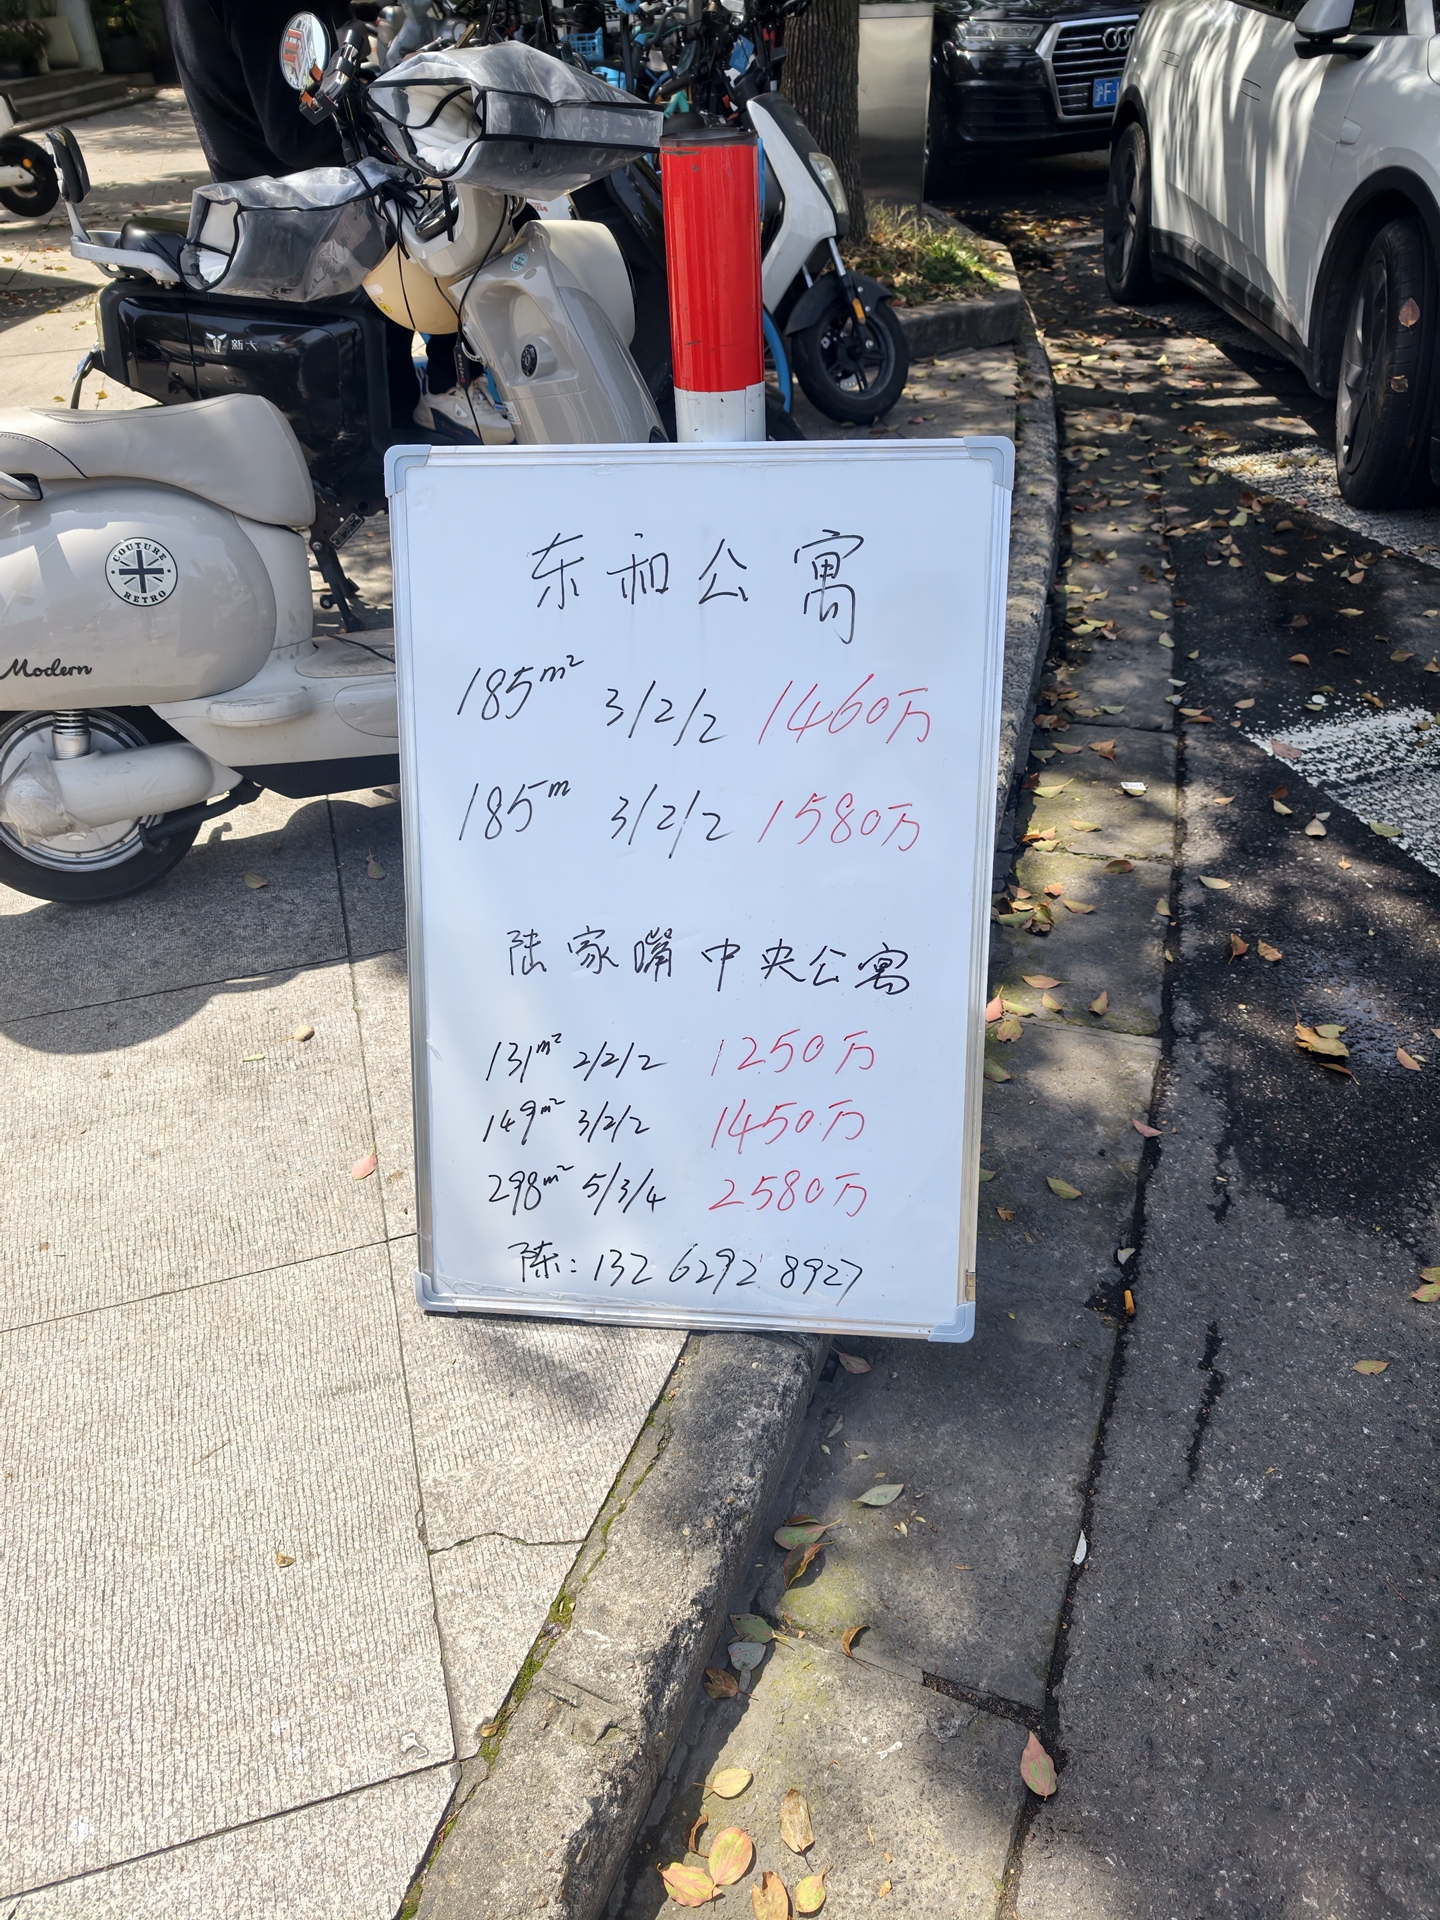 新大
COUTURE
RETRO
Modern
东和公寓
185m² 3/2/2 1460万
185m 3/2/2 1580万
陆家嘴中央公寓
131m² 2/2/2 1250万
149m² 3/2/2 1450万
298m² 5/3/4 2580万
陈: 132 6292 8927